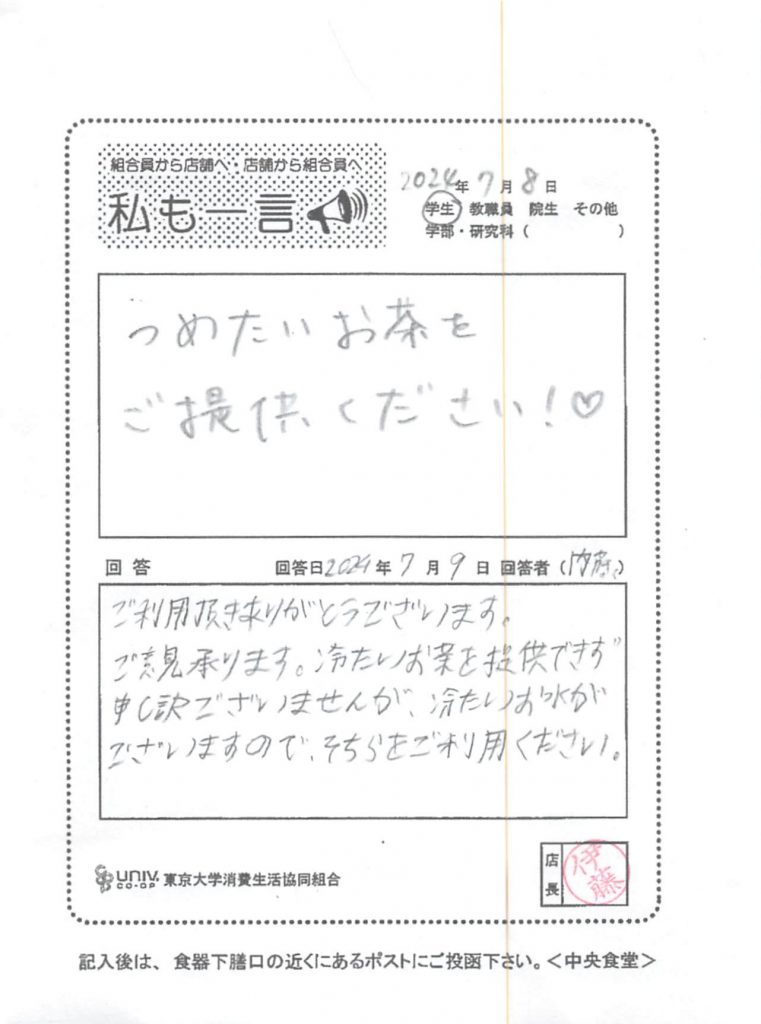 組合員から店舗へ・店舗から組合員へ
私も一言
2024年7月8日
学生 教職員 院生 その他
学部・研究科( )
つめたいお茶を
ご提供ください!♡
回答 回答日2024年7月9日 回答者(内藤)
ご利用頂きありがとうございます。
ご意見承ります。冷たいお茶を提供できず
申し訳ございませんが、冷たいお水が
ございますので、そちらをご利用ください。
UNIV. CO-OP 東京大学消費生活協同組合
店長 伊藤
記入後は、食器下膳口の近くにあるポストにご投函下さい。<中央食堂>